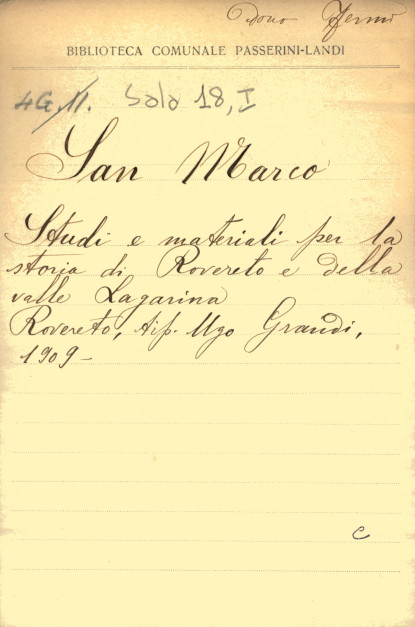 Dono Fermi
BIBLIOTECA COMUNALE PASSERINI-LANDI
4G.11. Sala 18, I
San Marco
Studi e materiali per la
storia di Rovereto e della
valle Lagarina
Rovereto, tip. Ugo Grandi,
1909-
c